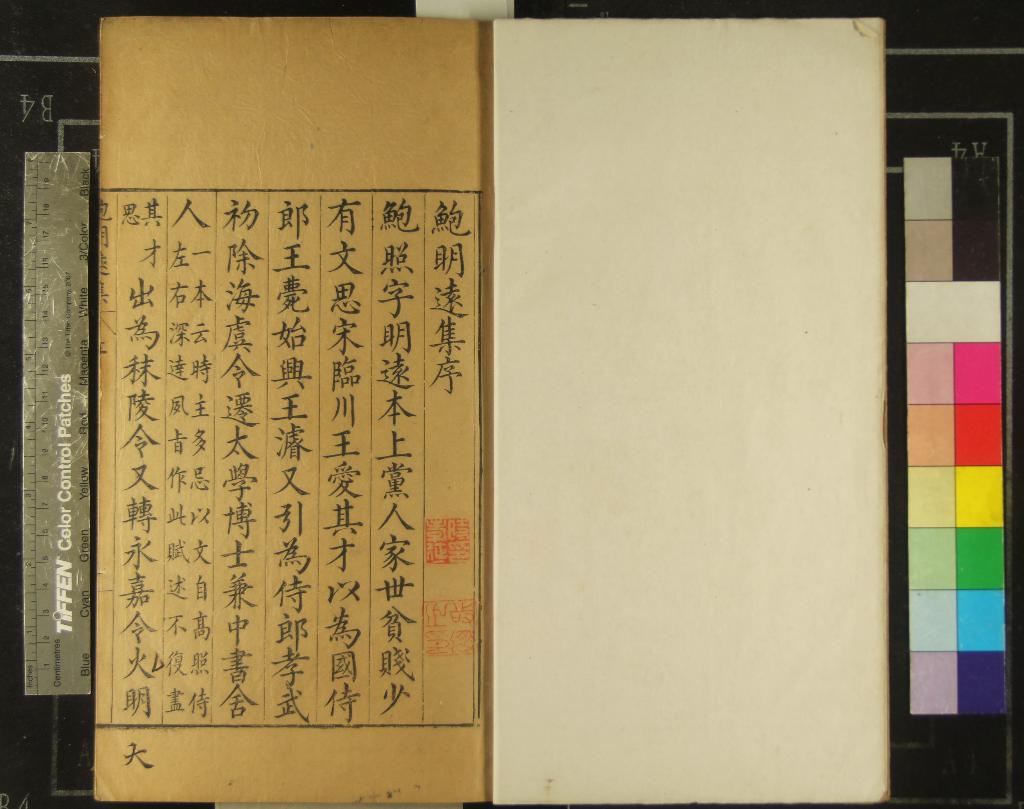 鮑明遠集序
鮑照字明遠本上黨人家世貧賤少
有文思宋臨川王愛其才以為國侍
郎王薨始興王濬又引為侍郎孝武
初除海虞令遷太學博士兼中書舍
人一本云時主多忌以文自高照侍
左右深達風旨作此賦述不復盡
其才
思
出為秣陵令又轉永嘉令火明
大
鮑明遠集
B4
A4
TIFFEN Color Control Patches
© The Tiffen Company, 2007
Centimetres
Inches
Blue
Cyan
Green
Yellow
Red
Magenta
White
3/Color
Black